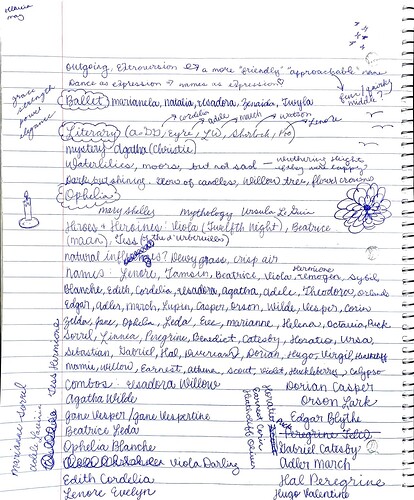 outgoing, Extroversion → a more "friendly" "approachable" name
Dance as expression → names as expression?
fun/quirky middle?
grace
strength
power
elegance
Ballet: marianela, natalia, isadora, Zenaida, Twyla
cordelia adele march watson Lenore
Literary (a-DD, Eyre, LW, Sherlock, Poe)
mystery - Agatha (Christie)
Waterlilies, moors, but not sad — Wuthering Heights
Dark but shining. Glow of candles, Willow tree, flower crowns
Ophelia
mary shelley mythology Ursula Le Guin
Heroes + Heroines: Viola (Twelfth Night), Beatrice
(maan), Tess (of the d'urbervilles)
natural influences? Dewy grass, crisp air
Hermione
Names: Lenore, Tamsin, Beatrice, Viola, Imogen, Sybil
Blanche, Edith, Cordelia, Isadora, Agatha, Adele, Theodora, Orlando
Edgar, Adler, March, Lupin, Casper, Orson, Wilde, Vesper, Corin
Zelda, Jane, Ophelia, Leda, Eve, Marianne, Helena, Octavia, Puck
Sorrel, Linnea, Peregrine, Benedict, Catesby, Horatio, Ursa
Sebastian, Gabriel, Hal, Dorian, Hugo, Virgil, Heathcliff
willow, Earnest, Athena, Scout, Violet, Huckleberry, Calypso
Combos: Isadora Willow
Dorian Casper
Agatha Wilde
Orson Lark
Jane Vesper/Jane Vespertine
Edgar Blythe
Beatrice Leda
Peregrine
Ophelia Blanche
Gabriel Catesby
Viola Darling
Adler March
Edith Cordelia
Hal Peregrine
Lenore Evelyn
Hugo Valentine
marianne Sorrel
Tess Hermione
Earnest Corin